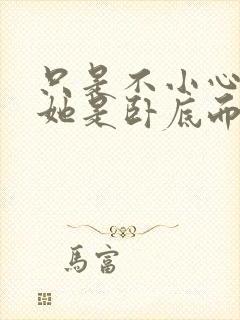 只是不小心
她是卧底而
馬富